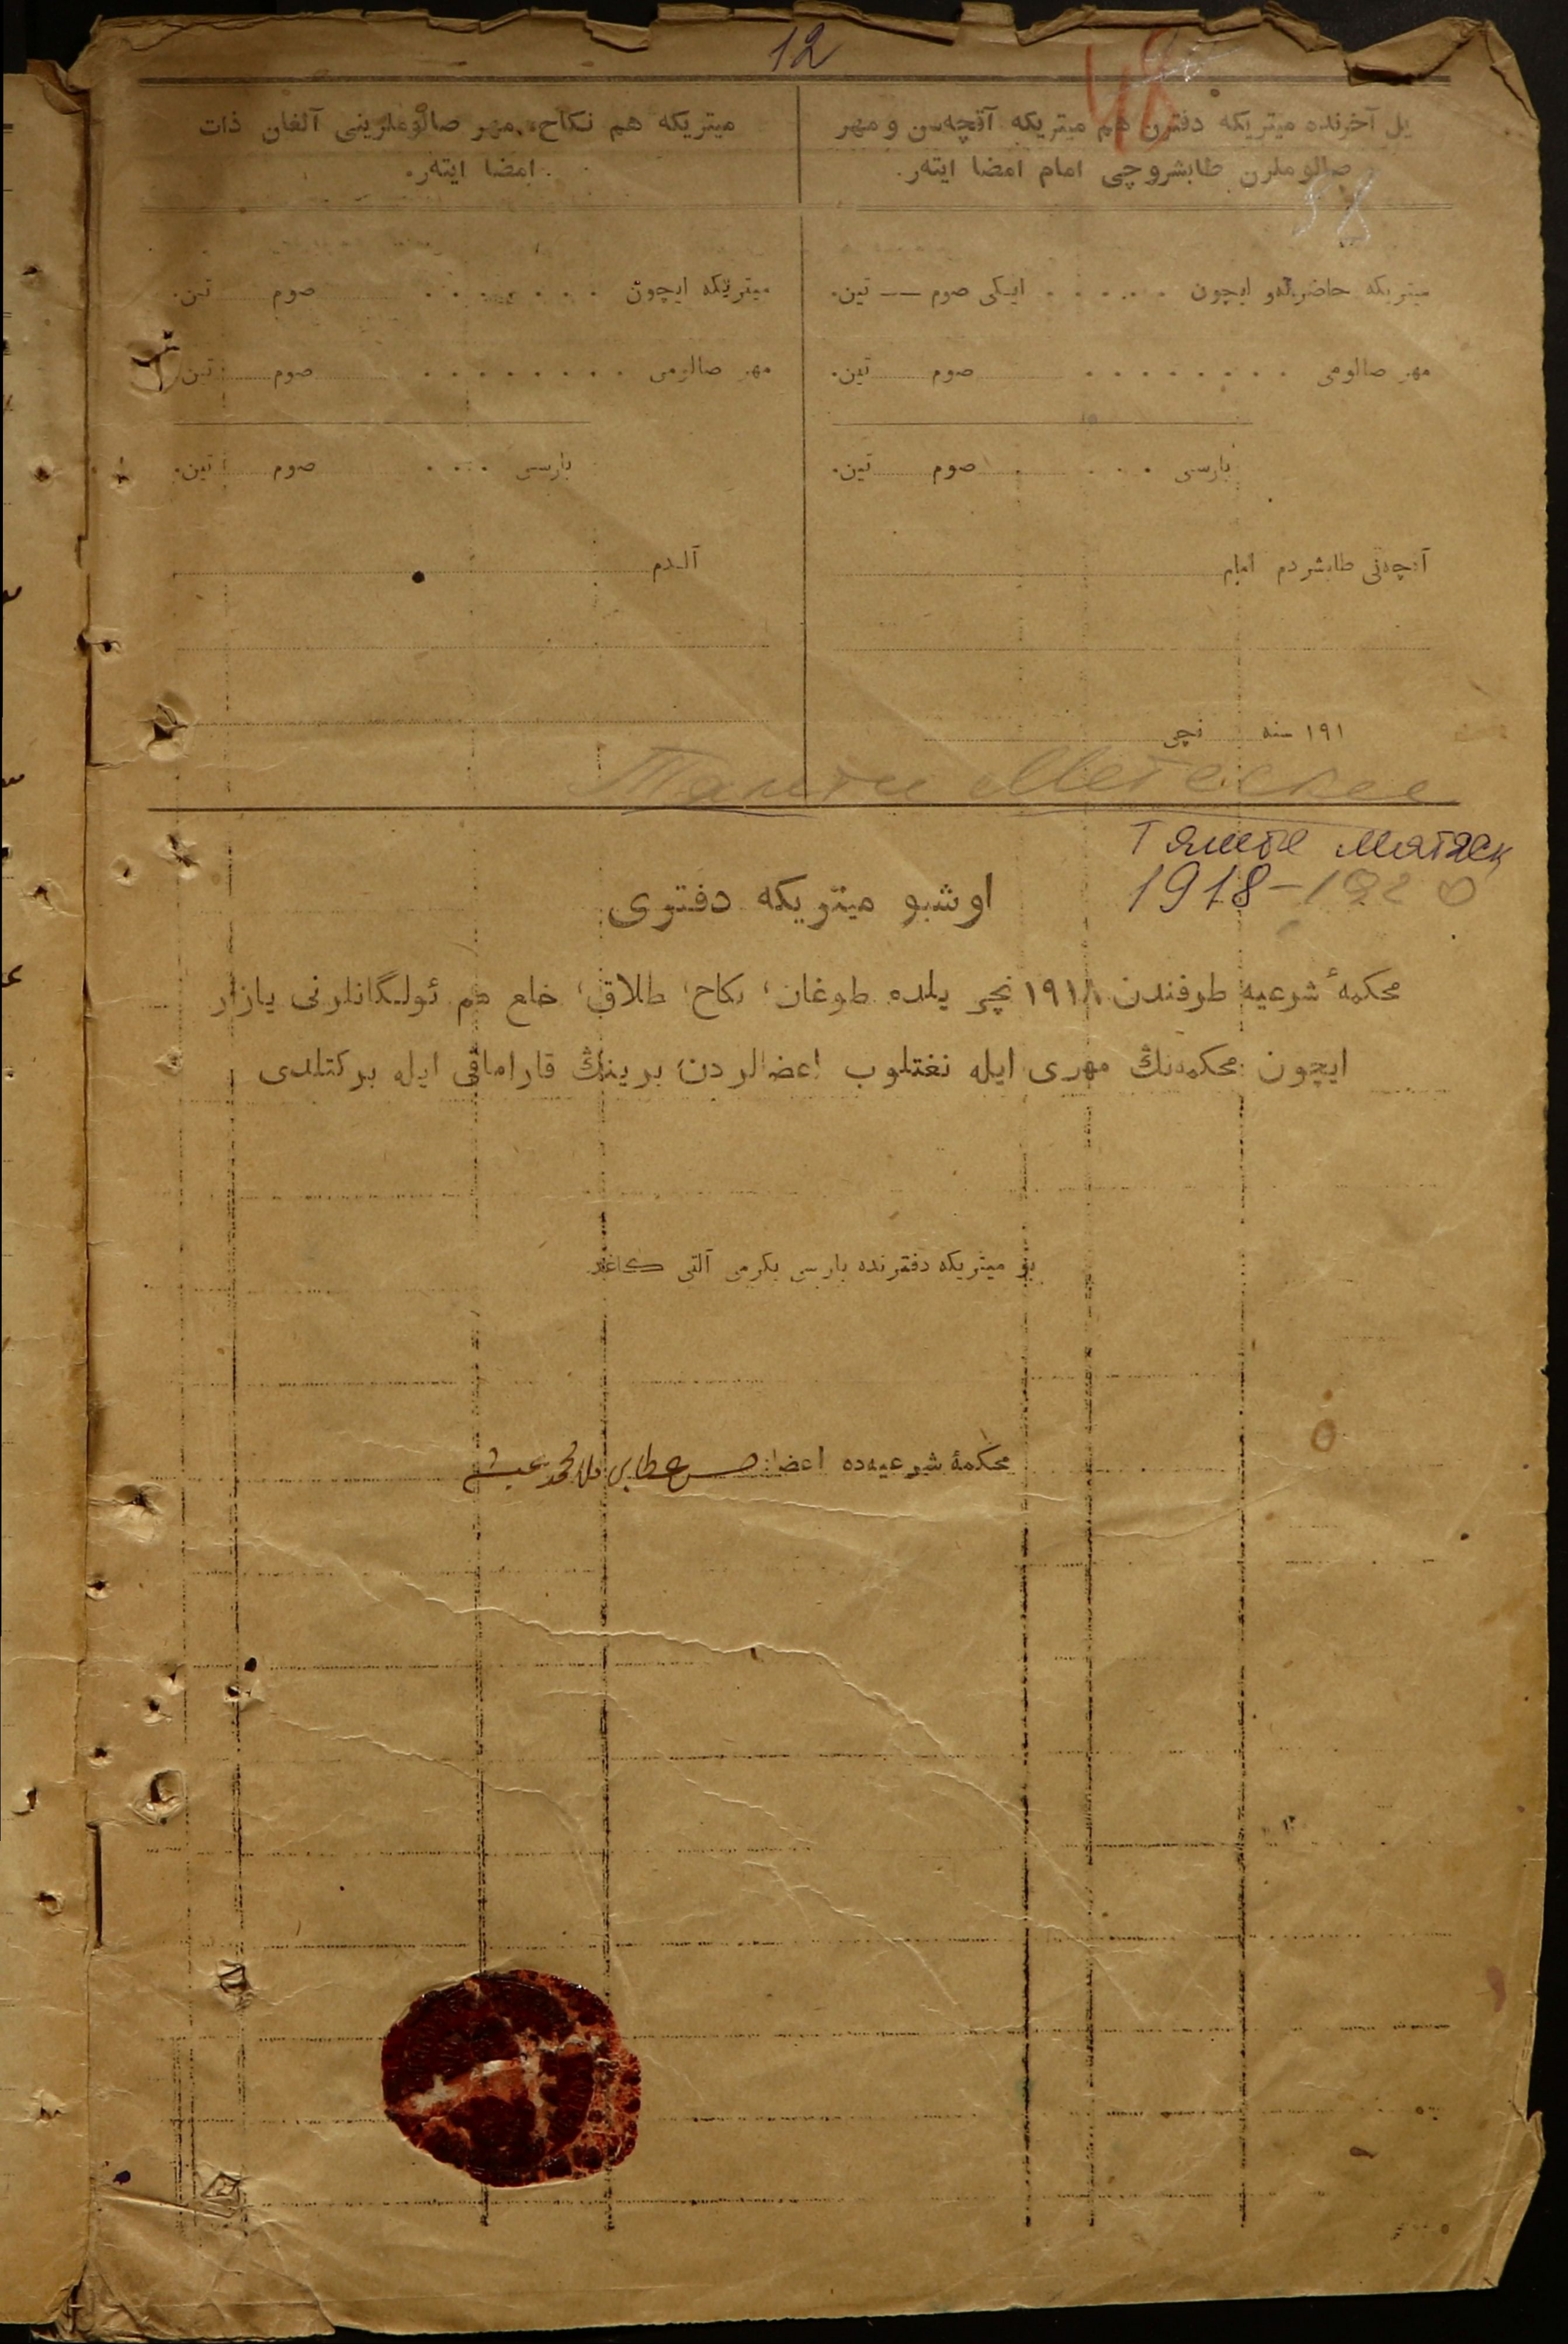 12
48
58
یل آخرنده میتریکه دفترن هم میتریکه آقچه‌سن و مهر
صالوملرن طابشروچی امام امضا ایته‌ر.
میتریکه حاضرله‌و ایچون . . . . . ایکی صوم — تین.
مهر صالومی . . . . . . . . صوم تین.
بارسی . . . . صوم تین.
آقچه‌نی طابشردم امام
۱۹۱ سنه نچی
میتریکه هم نکاح، مهر صالوملرینی آلغان ذات
امضا ایته‌ر.
میتریکه ایچون . . . . . . . صوم تین.
مهر صالومی . . . . . . . . صوم تین.
بارسی . . . صوم تین.
آلدم
Тямте Мәтәск
1918-1920
اوشبو میتریکه دفتری
محکمۀ شرعیه طرفندن ۱۹۱۸ نچی یلده طوغان، نکاح، طلاق، خلع هم ئولگانلرنی یازار
ایچون محکمه‌نڭ مهری ایله نغتلوب اعضالردن برینڭ قارامافی ایله برکتلدی
بو میتریکه دفترنده بارسی یکرمی آلتی کاغد
محکمۀ شرعیه‌ده اعضا: